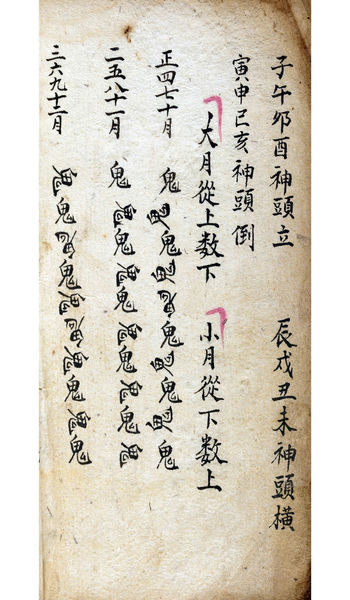 子午卯酉神頭立 辰戌丑未神頭橫
寅申巳亥神頭倒
大月從上数下 小月從下数上
正四七十月 鬼鬼鬼鬼鬼鬼鬼鬼鬼鬼
二五八十一月 鬼鬼鬼鬼鬼鬼鬼鬼鬼鬼
三六九十二月 鬼鬼鬼鬼鬼鬼鬼鬼鬼鬼